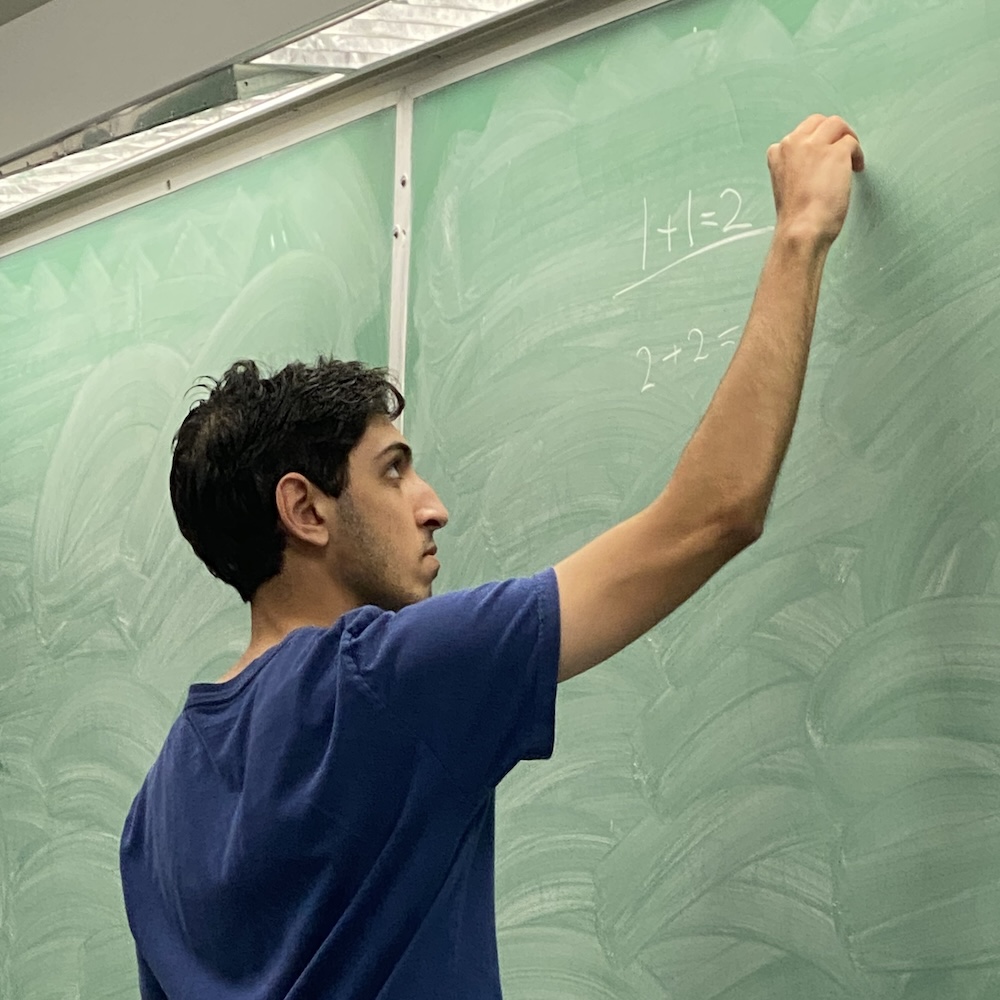 1+1=2
2+2=